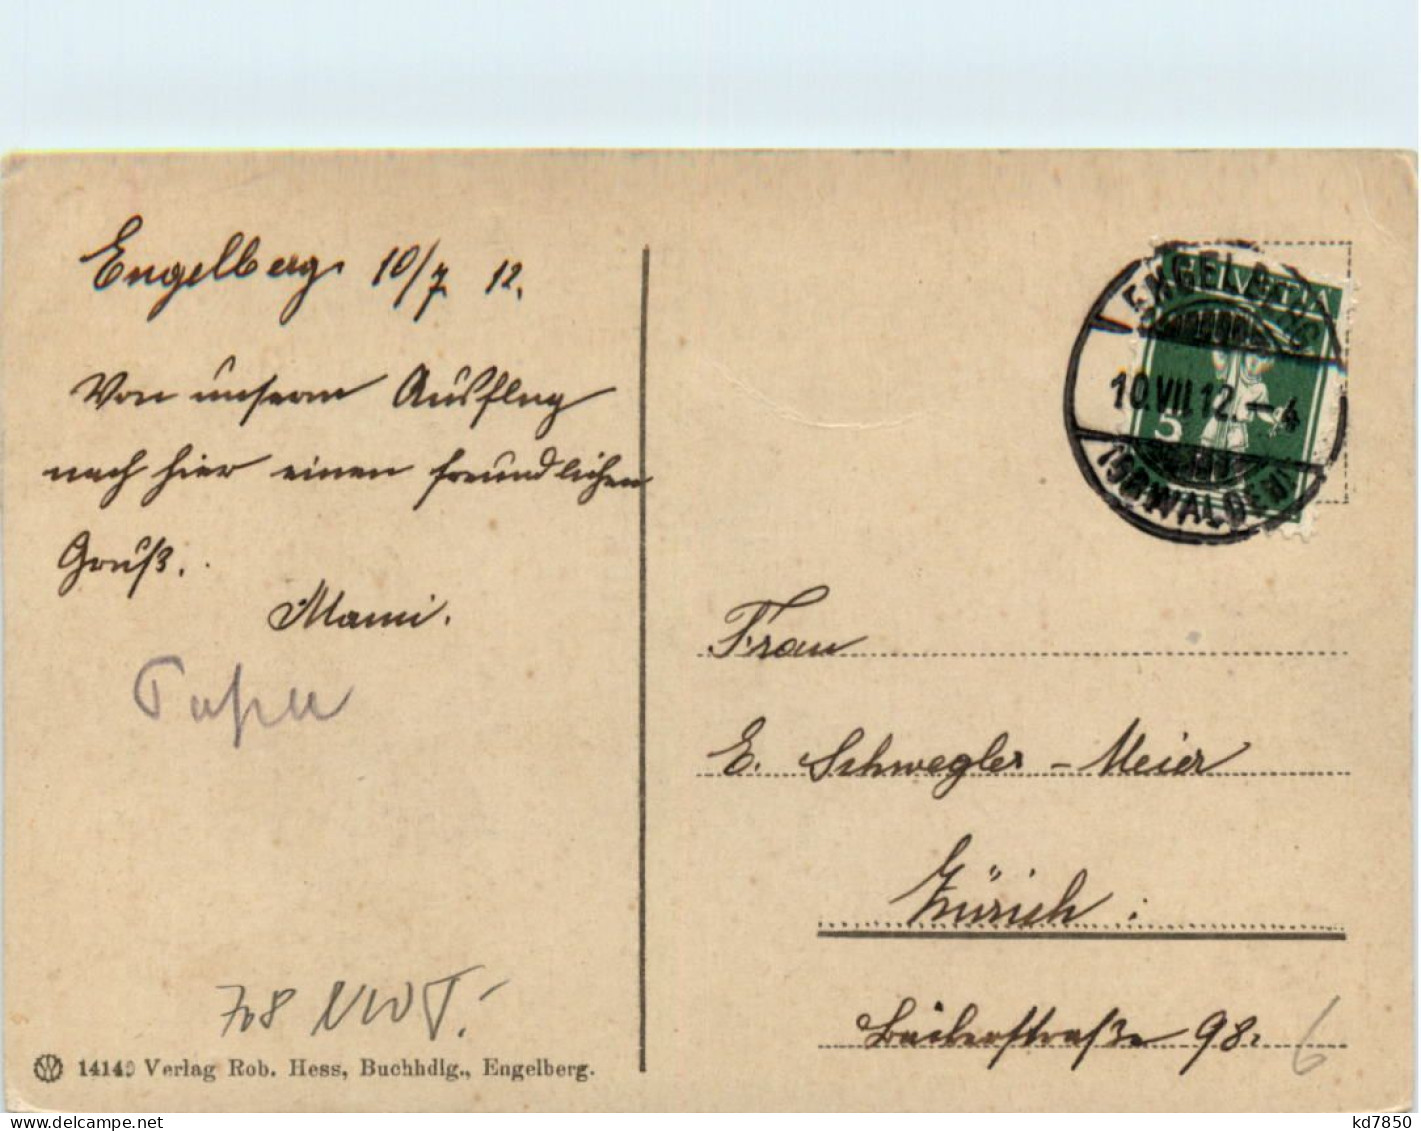 Engelberg 10/7 12.
Von unserm Ausflug
nach hier einen freundlichen
Gruß.
Mami.
HELVETIA
5
ENGELBERG
10.VII.12.-4
(OBWALDEN)
Frau
E. Schwegler-Meier
Zürich.
98.
6
708
Verlag Rob. Hess, Buchhdlg., Engelberg.
kd7850